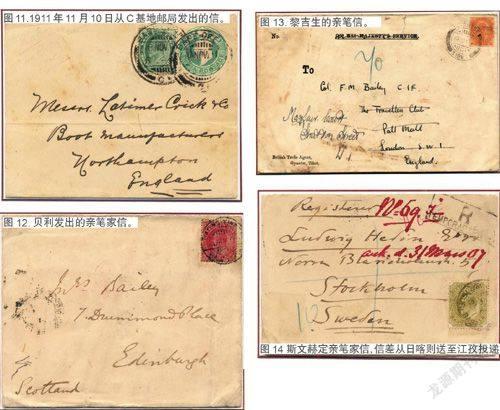 图 11.1911 年 11 月 10 日从C基地邮局发出的信。
Messrs. Latimer Crick & Co
Boot Manufacturers
Northampton
England
图 12. 贝利发出的亲笔家信。
Mrs Bailey
7. Drummond Place
Edinburgh
Scotland
图 13. 黎吉生的亲笔信。
No.
ON HIS MAJESTY'S SERVICE.
To
Col. F. M. Bailey C.I.E.
The Travellers Club
Pall Mall
London S.W.1
England
British Trade Agent,
Gyantse, Tibet.
Registered
R
Ludwig Hedin
Norra Blasieholmsh. 5
Stockholm
Sweden
图 14 斯文赫定亲笔家信,信差从日喀则送至江孜投递
龙源期刊